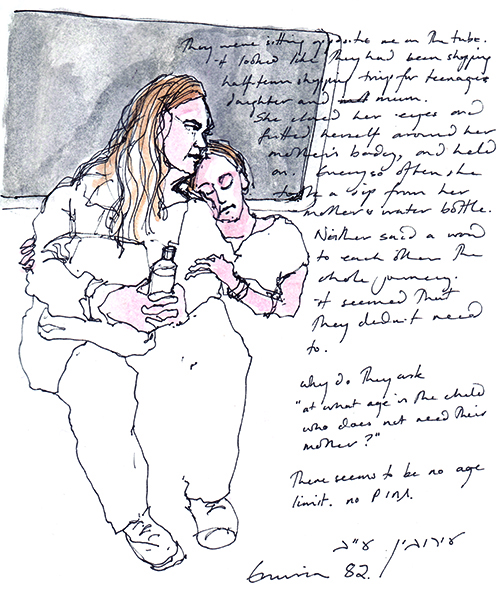 They were sitting opposite me on the tube.
it looked like they had been shopping
half term shopping trip for teenage
daughter and mum.
She closed her eyes and
fitted herself around her
mother's body, and held
on. Every so often she
took a sip from her
mother's water bottle.
Neither said a word
to each other the
whole journey.
it seemed that
they didn't need
to.
why do they ask
"at what age is the child
who does not need their
mother?"
There seems to be no age
limit. no
עירובין
Eruvin 82.